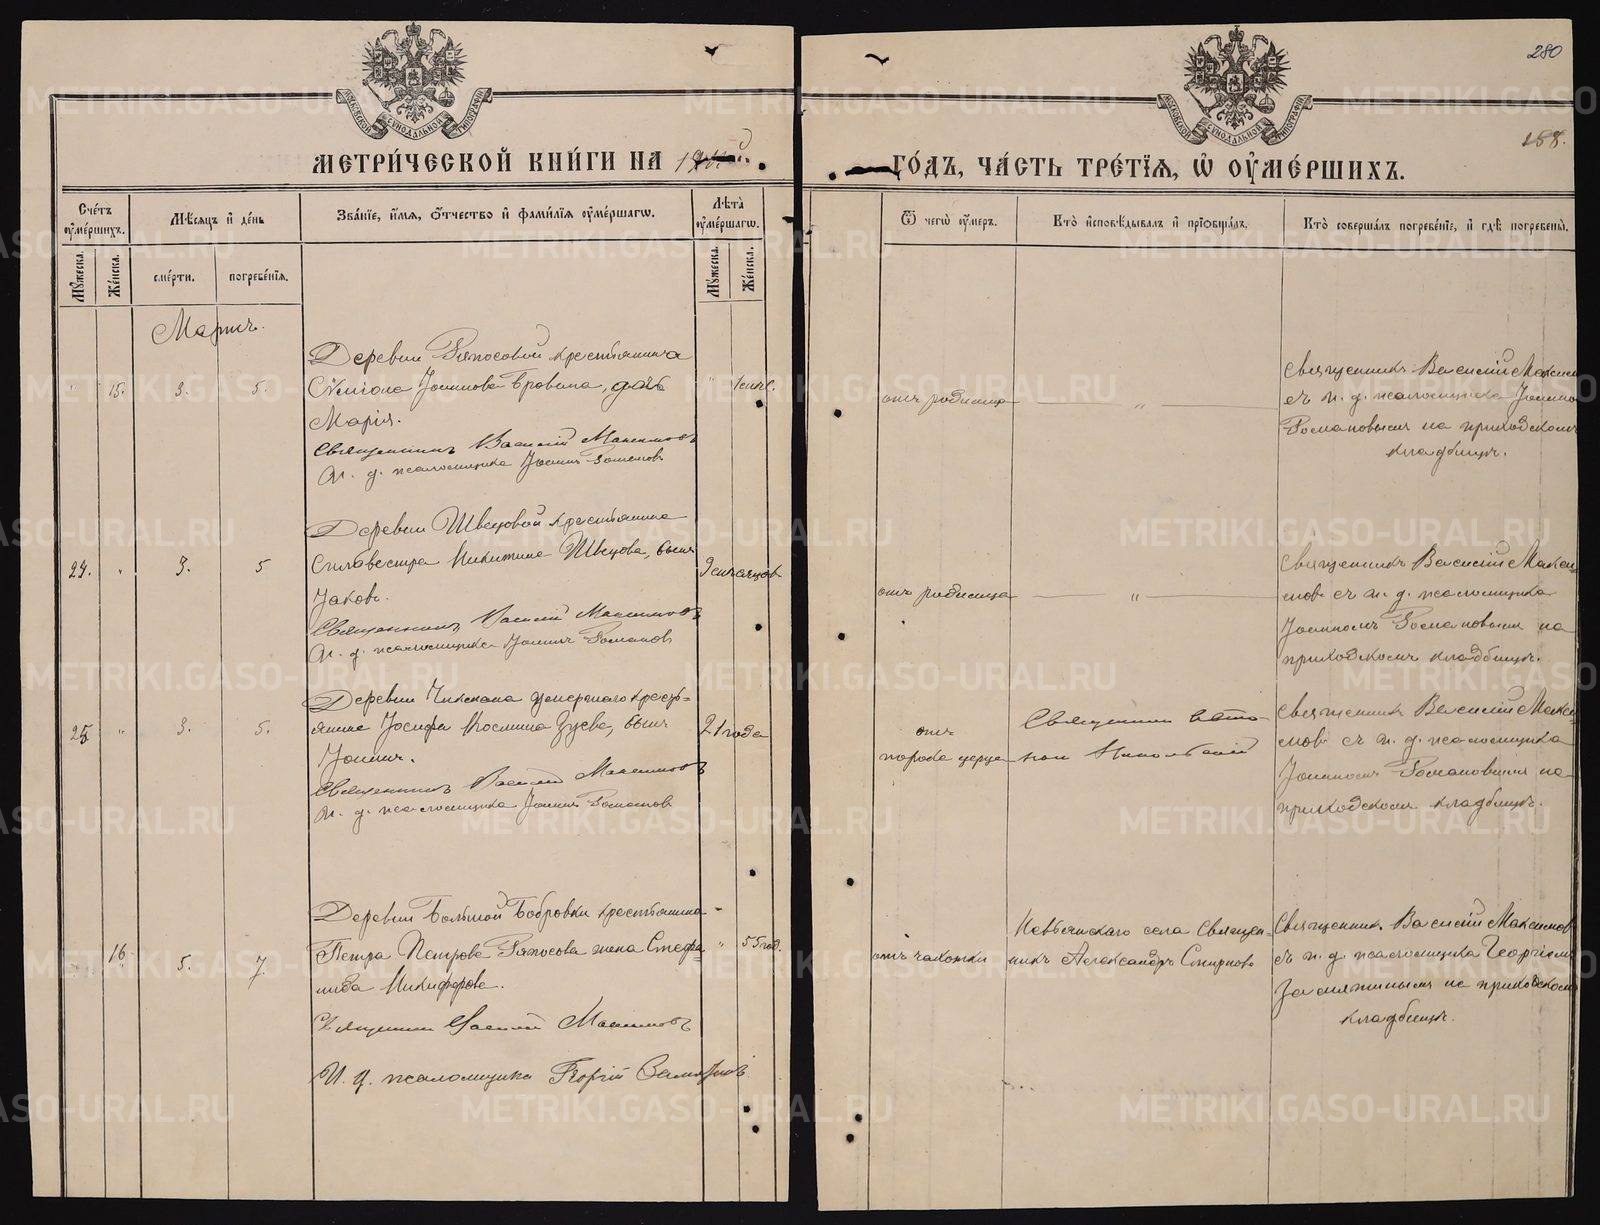 280
МОСКОВСКОЙ СѴНОДАЛЬНОЙ ТИПОГРАФІИ
МОСКОВСКОЙ СѴНОДАЛЬНОЙ ТИПОГРАФІИ
188.
МЕТРИ́ЧЕСКОЙ КНИ́ГИ НА
ГО́ДЪ, ЧА́СТЬ ТРЕ́ТЇѦ, Ѡ҆ ОУ҆МЕ́РШИХЪ.
Сче́тъ оу҆ме́ршихъ.
Му́жеска.
Же́нска.
Мѣ́сѧцъ и҆ де́нь
сме́рти.
погребе́нїѧ.
Зва́нїе, и҆́мѧ, ѻ҆́тчество и҆ фами́лїѧ оу҆ме́ршагѡ.
Лѣ́та оу҆ме́ршагѡ.
Му́жеска.
Же́нска.
Ѿ чегѡ̀ оу҆́меръ.
Кто̀ и҆сповѣ́дывалъ и҆ прїѡбща́лъ.
Кто̀ соверша́лъ погребе́нїе, и҆ гдѣ̀ погребены̀.
Мартъ.
" 15. 3. 5.
Деревни Ряпосовой крестьянина
Іоаннова Бровина, дочь
Марія.
Священникъ Василій Максимовъ
И. д. псаломщика Іоаннъ Романовъ
" 1 мѣс.
отъ родимца
"
Священникъ Василій Максим
съ и. д. псаломщика Іоанно
Романовымъ на приходскомъ
кладбищѣ.
24. " 3. 5
Деревни Швецовой крестьянина
Сильвестра Никитина Швецова, сынъ
Іаковъ.
Священникъ Василій Максимовъ
И. д. псаломщика Іоаннъ Романовъ
9 мѣсяцов
отъ родимца
"
Священникъ Василій Макси-
мовъ съ и. д. псаломщика
Іоанномъ Романовымъ на
приходскомъ кладбищѣ.
25 " 3. 5.
Деревни умершаго кресть-
янина Іосифа Космина Зуева, сынъ
Іоаннъ.
Священникъ Василій Максимовъ
И. д. псаломщика Іоаннъ Романовъ
21 года
отъ
порока сердца
Священникъ
Никольскій
Священникъ Василій Макси-
мовъ съ и. д. псаломщика
Іоанномъ Романовымъ на
приходскомъ кладбищѣ.
16 5. 7.
Деревни Большой Бобровки крестьянина
Петра Петрова Ряпосова жена Стефа-
нида Никифорова.
Священникъ Василій Максимовъ
И. д. псаломщика Георгій
" 55 год.
отъ чахотки
Невьянскаго села Священ-
никъ Александръ Смирновъ
Священникъ Василій Максимов
съ и. д. псаломщика Георгіемъ
на приходском
кладбищѣ.
METRIKI.GASO-URAL.RU